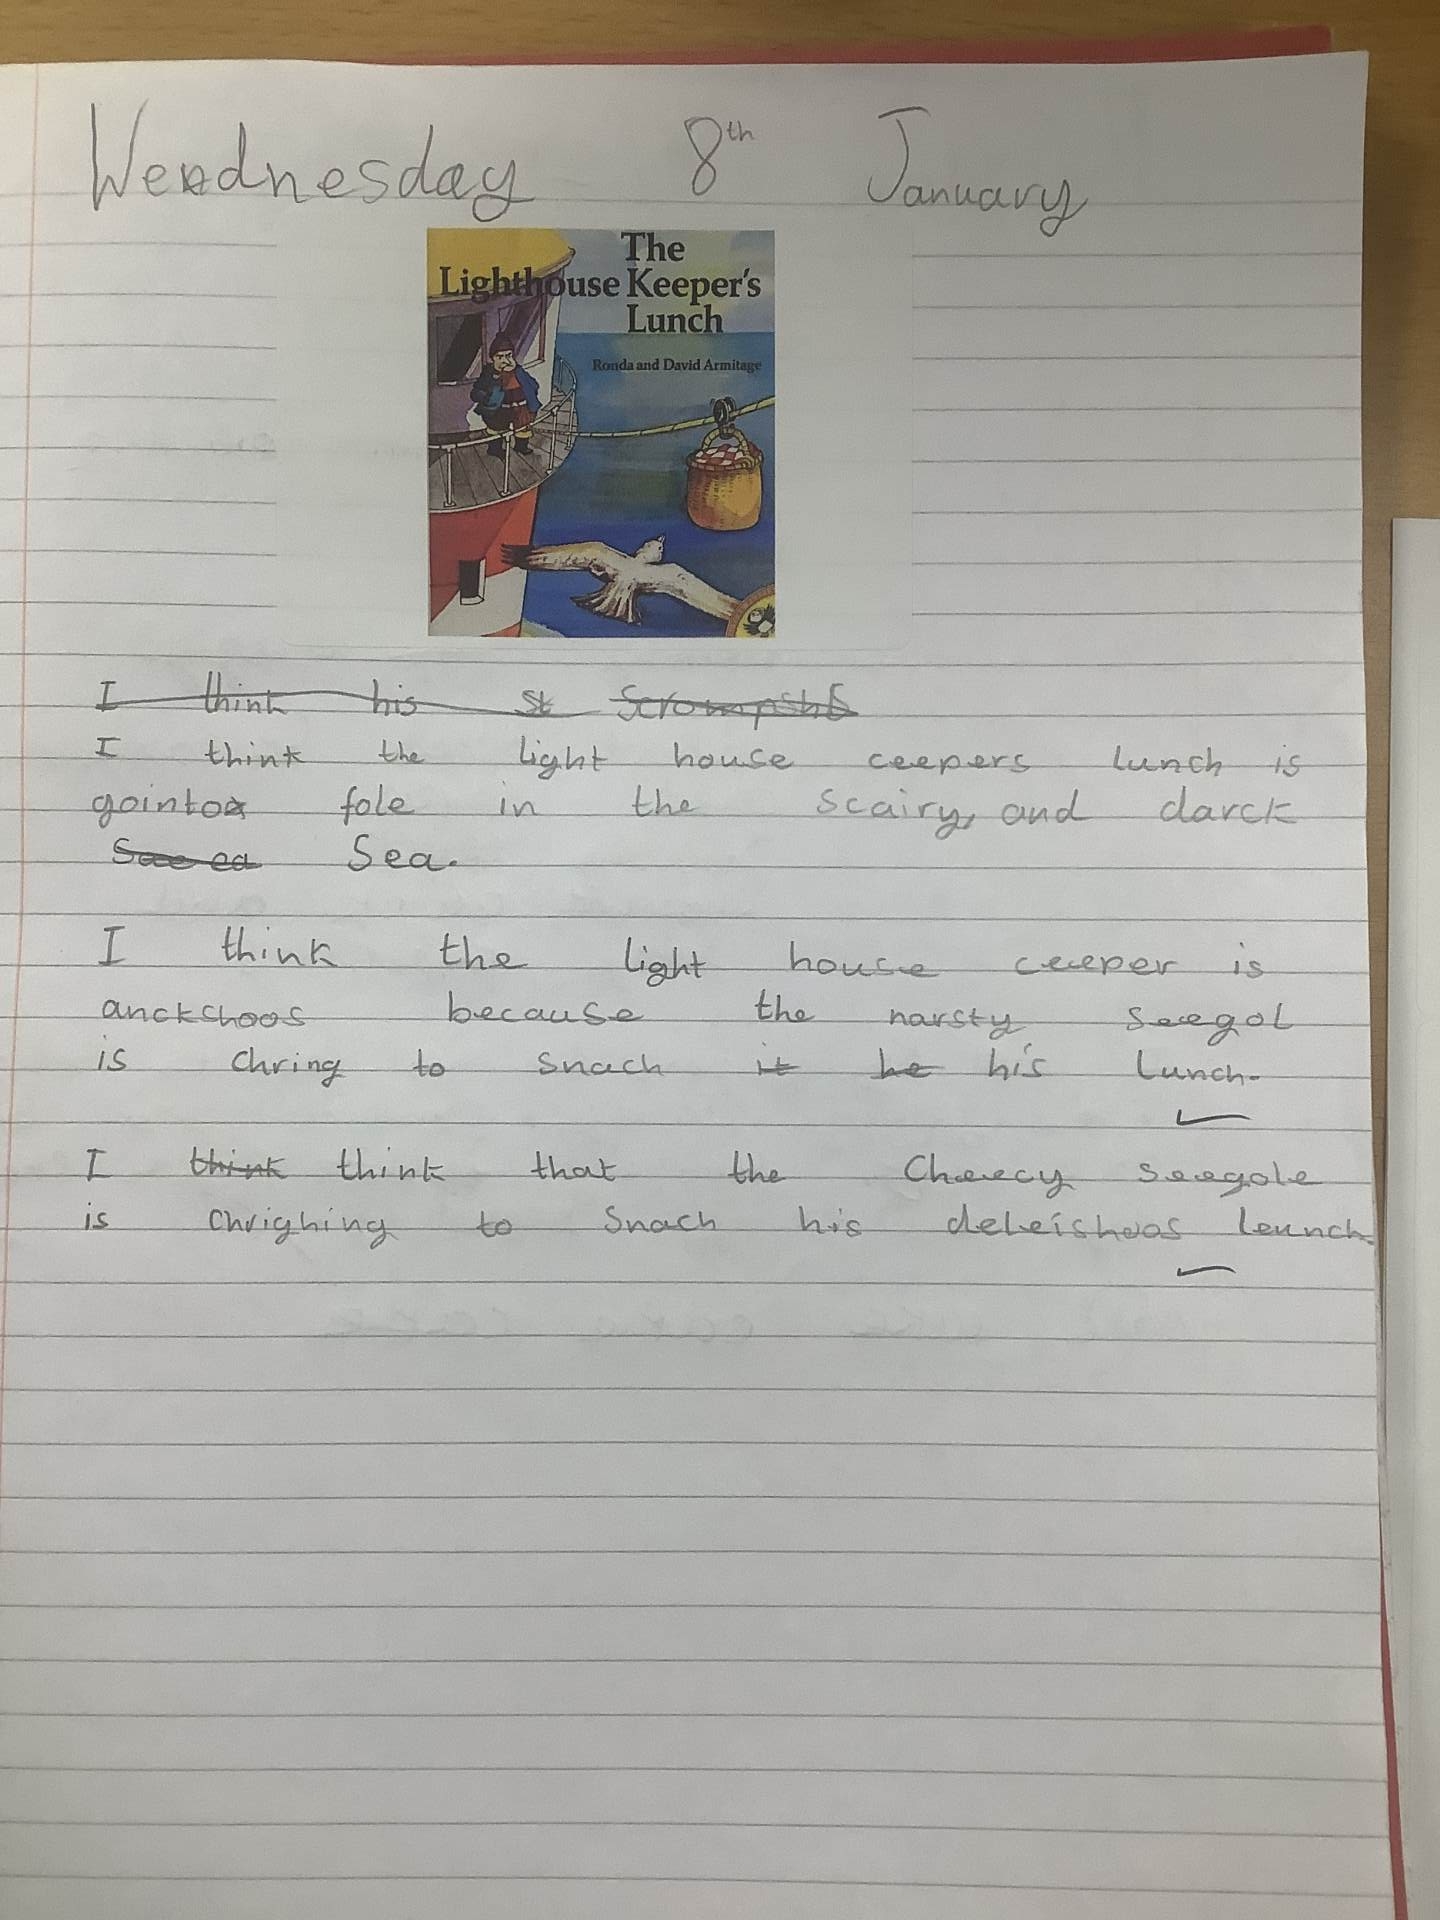 Wednesday 8th January
The
Lighthouse Keeper's
Lunch
Ronda and David Armitage
I think his st
I think the light house ceepers lunch is
gointoo fole in the scairy, and darck
Sea.
I think the light house ceeper is
anckshoos because the narsty seegol
is chring to snach it he his lunch.
I think think that the cheecy seegole
is chrighing to snach his deleishoos leunch.